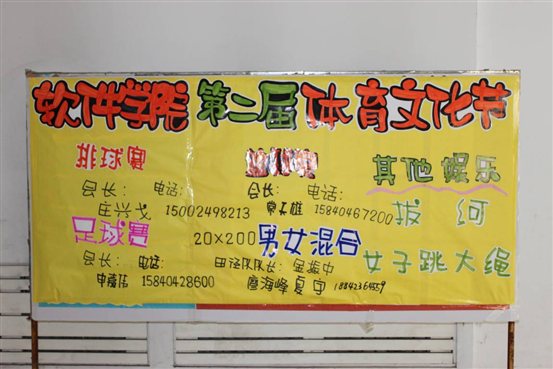 软件学院第二届体育文化节
排球赛
会长： 电话：
庄兴戈 15002498213
足球赛
会长： 电话：
15840428600
会长： 电话：
15840467200
20×200男女混合
田径队队长：金振中
唐海峰 夏宇 18842364559
其他娱乐
拔河
女子跳大绳